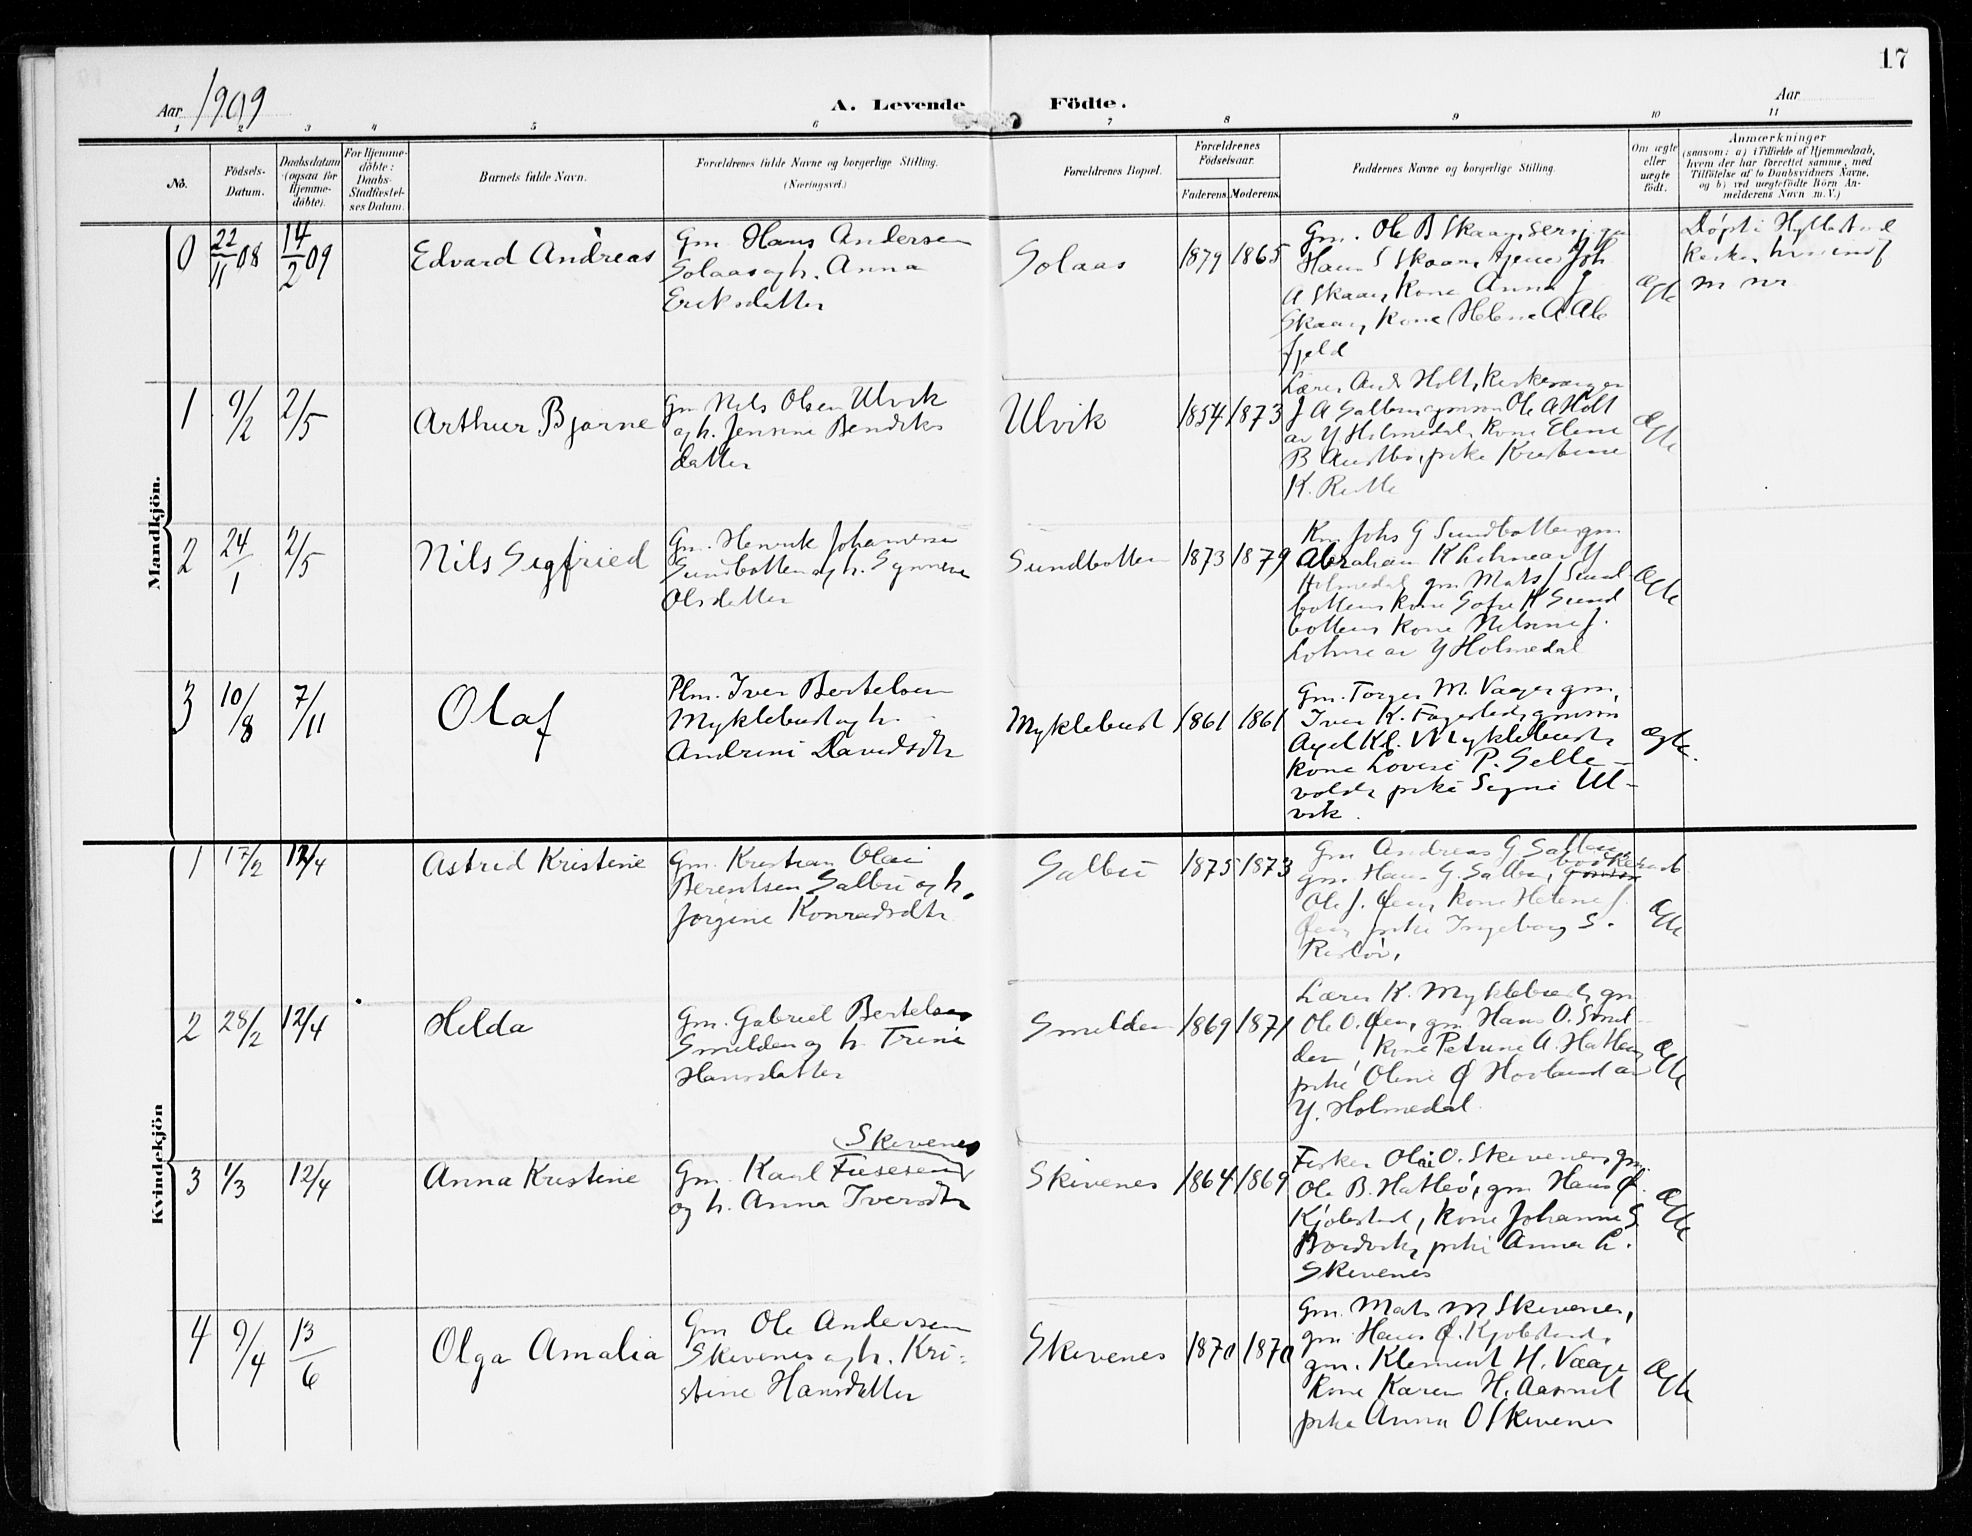 17
Aar 1909
A. Levende Födte.
Aar
1 2 3 4 5 6 7 8 9 10 11
No.
Födsels-
Datum.
Daabsdatum
(ogsaa for
Hjemme-
döbte).
For Hjemme-
döbte:
Daabs-
Stadfæstel-
ses Datum.
Barnets fulde Navn.
Forældrenes fulde Navne og borgerlige Stilling.
(Næringsvei.)
Forældrenes Bopæl.
Forældrenes
Födselsaar.
Faderens. Moderens.
Faddernes Navne og borgerlige Stilling.
Om ægte
eller
uægte
födt.
Anmærkninger
(saasom: a) i Tilfælde af Hjemmedaab,
hvem der har forrettet samme, med
Tilföielse af to Daabsvidners Navne,
og b) ved uægtefödte Börn An-
melderens Navn m. V.)
Mandkjön.
0
22/11 08
14/2 09
Edvard Andreas
Gm. Hans Andersen
Solaas og h. Anna
Eriksdatter
Solaas
1879 1865
Gm. Ole B Skaar,
Hans S Skaar, Joh
A Skaar, Kone Anna J
Skaar, Kone Helene A. Aa
fjeld
Ægte
Døpt i Hyllestad
Kirke,
m nr
1
9/2
2/5
Arthur Bjarne
Gm Nils Olsen Ulvik
og h. Jensine Bendiks
datter
Ulvik
1854 1873
Lærer And Holt, Kirkesanger
J A Salbu, gmsøn Ole A Holt
av Y Holmedal, Kone Eline
B , pike Kristine
K.
Ægte
2
24/1
2/5
Nils Sigfried
Gm. Henrik Johannesen
Sundbotten og h. Synneve
Olsdatter
Sundbotten
1873 1879
Km Johs G Sundbotten, gm
Abraham K Lohne av Y
Holmedal, gm Mats J Sund
botten, Kone Sofie K Sund
botten, Kone Nilsine J.
Lohne av Y Holmedal
Ægte
3
10/8
7/11
Olaf
Plm. Iver Bertelsen
Myklebust og h.
Andrine Davidsdtr
Myklebust
1861 1861
Gm. Torger M. Vaage, gm,
Iver K. Fagerbed, gmsøn
Axel Kl. Myklebust,
Kone Lovise P. Selle-
vold, pike Signe Ul-
vik.
Ægte.
Kvindekjön
1
17/2
12/4
Astrid Kristine
Gm. Kristian Olai
Berentsen Salbu og h.
Jørgine Konradsdtr
Salbu
1875 1873
Gm Andreas G Salbu,
gm. Hans G. Salbu,
Ole J. Øen, Kone Helene J.
Øen, pike Ingeborg S.
Ægte
2
28/2
12/4
Hilda
Gm. Gabriel Bertelsen
Smilden og h. Trine
Hansdatter
Smilden
1869 1871
Lærer K. Myklebust, gm
Ole O. Øen, gm Hans O. Smil-
den, Kone Petrine A. Hatlem,
pike Oline O Hovland av
Y. Holmedal.
Ægte
3
1/3
12/4
Anna Kristine
Skivenes
Gm. Karl
og h. Anna Iversdtr
Skivenes
1864 1869
Fisker Olai O. Skivenes, gm
Ole B. Hatlø, gm Hans O.
Kjølestad, Kone Johanne S.
Bordvik, pike Anna L.
Skivenes
Ægte
4
9/4
13/6
Olga Amalia
Gm Ole Andersen
Skivenes og h. Kri-
stine Hansdatter
Skivenes
1870 1870
Gm. Mats M Skivenes,
gm. Hans O. Kjølestad,
gm. Klement H. Vaage
Kone Karen H. Aasnes
pike Anna O Skivenes
Ægte